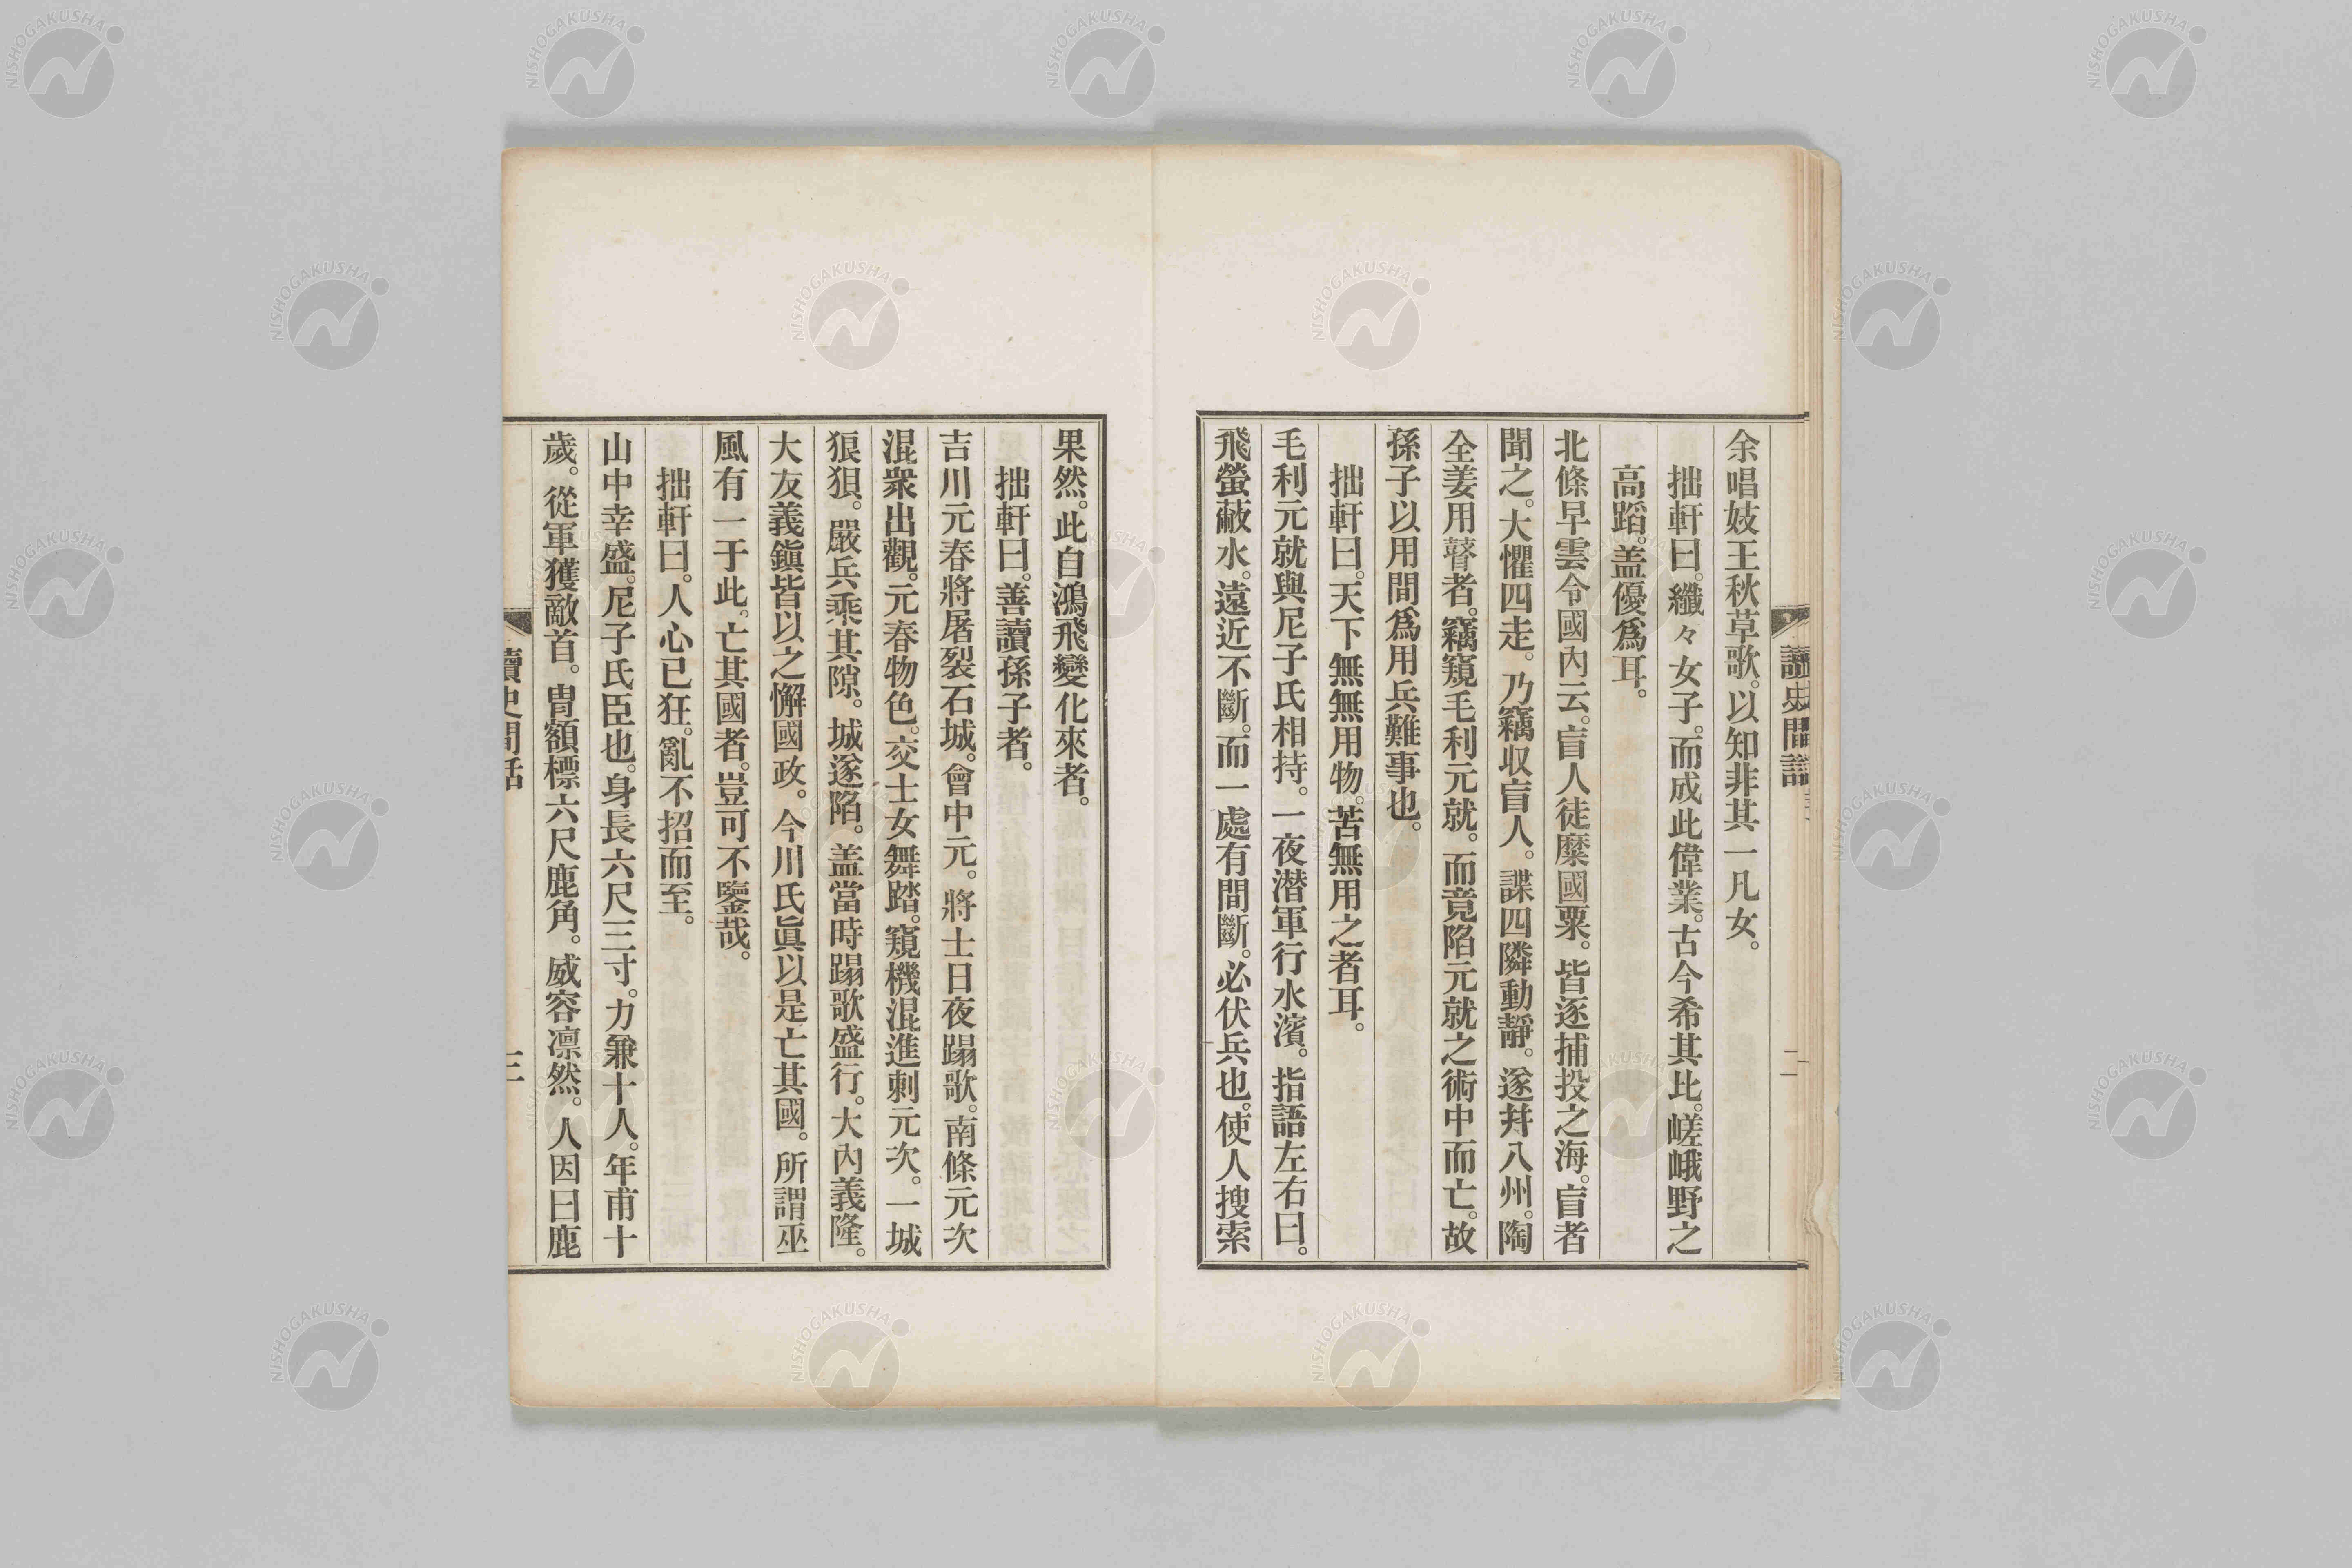 讀史閒話
二
余唱妓王秋草歌。以知非其一凡女。
拙軒曰。纖々女子。而成此偉業。古今希其比。嵯峨野之
高蹈。盖優爲耳。
北條早雲令國內云。盲人徒糜國粟。皆逐捕投之海。盲者
聞之。大懼四走。乃竊収盲人。諜四隣動靜。遂幷八州。陶
全姜用瞽者。竊窺毛利元就。而竟陷元就之術中而亡。故
孫子以用間爲用兵難事也。
拙軒曰。天下無無用物。苦無用之者耳。
毛利元就與尼子氏相持。一夜潜軍行水濱。指語左右曰。
飛螢蔽水。遠近不斷。而一處有間斷。必伏兵也。使人搜索
果然。此自鴻飛變化來者。
拙軒曰。善讀孫子者。
吉川元春將屠裂石城。會中元。將士日夜蹋歌。南條元次
混衆出觀。元春物色。交士女舞踏。窺機混進刺元次。一城
狼狽。嚴兵乘其隙。城遂陷。盖當時蹋歌盛行。大內義隆。
大友義鎭皆以之懈國政。今川氏眞以是亡其國。所謂巫
風有一于此。亡其國者。豈可不鑒哉。
拙軒曰。人心已狂。亂不招而至。
山中幸盛。尼子氏臣也。身長六尺三寸。力兼十人。年甫十
歲。從軍獲敵首。冑額標六尺鹿角。威容凛然。人因曰鹿
讀史閒話
三
NISHOGAKUSHA